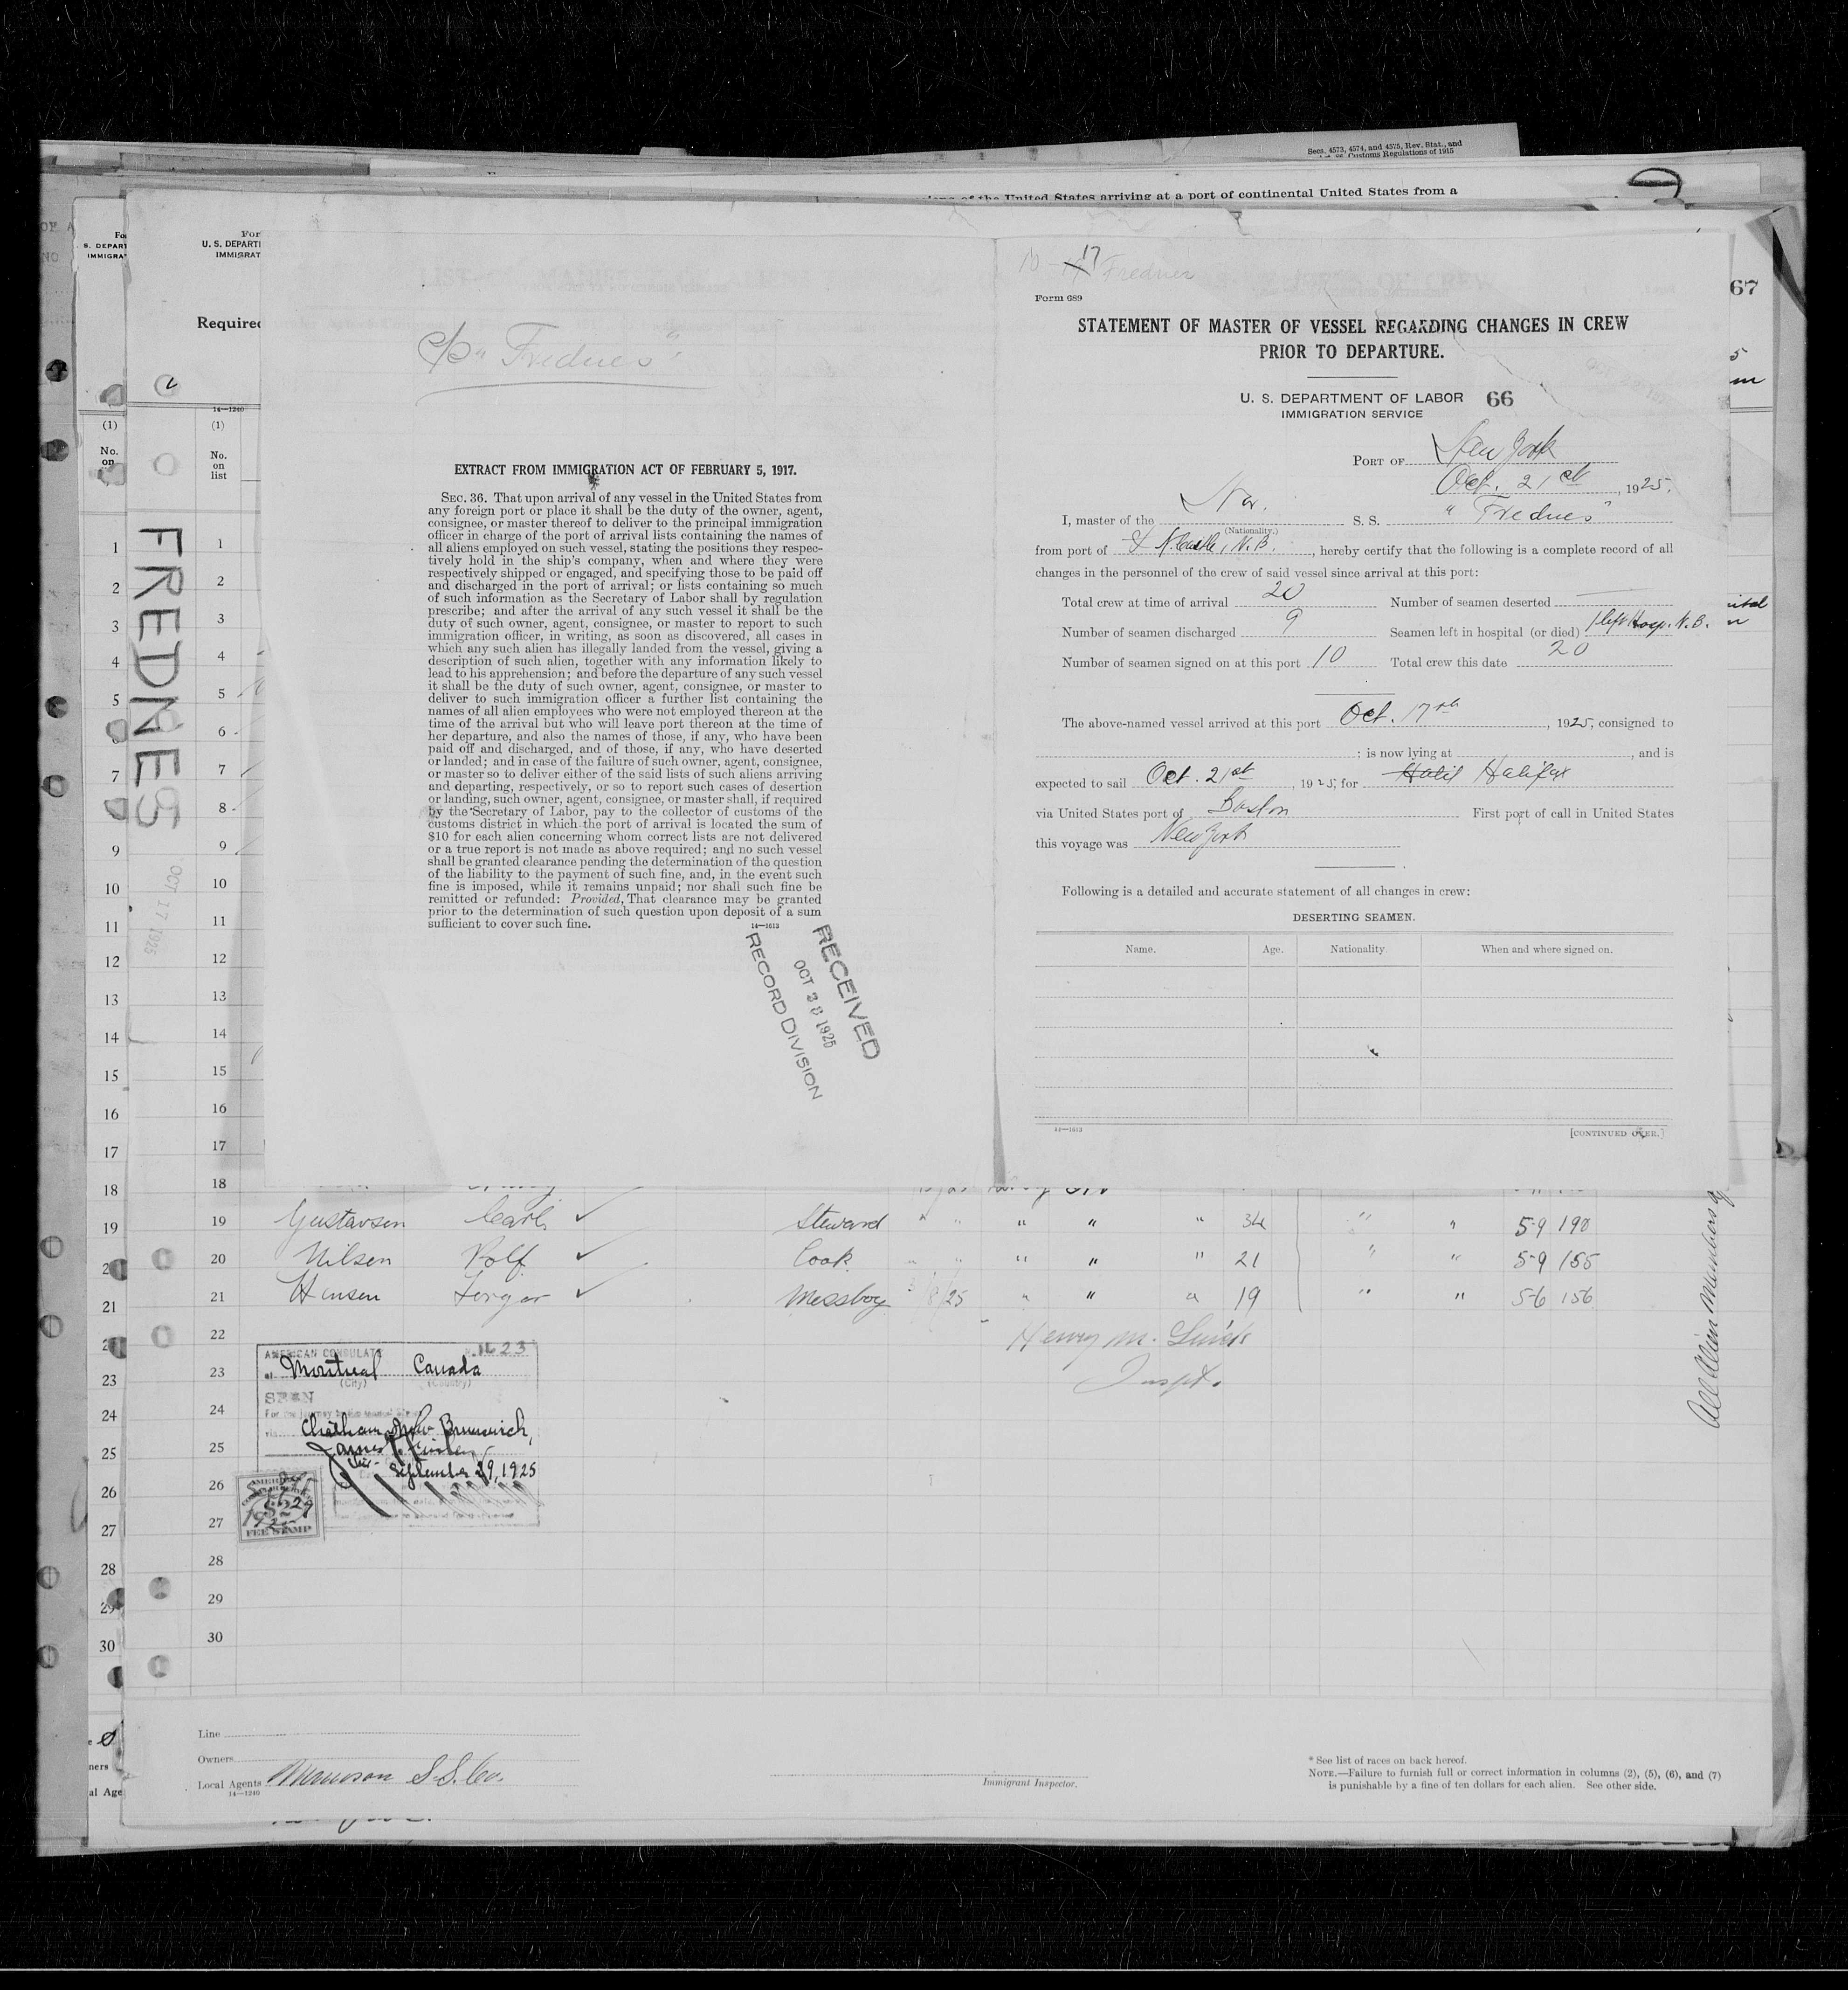 Secs. 4573, 4574, and 4575, Rev. Stat., and
Customs Regulations of 1915
of the United States arriving at a port of continental United States from a
67
U. S. DEPARTI
IMMIGRAT
Required
14—1240
(1)
No.
on
list
FREDNES
OCT 17 1925
"Frednes"
EXTRACT FROM IMMIGRATION ACT OF FEBRUARY 5, 1917.
SEC. 36. That upon arrival of any vessel in the United States from
any foreign port or place it shall be the duty of the owner, agent,
consignee, or master thereof to deliver to the principal immigration
officer in charge of the port of arrival lists containing the names of
all aliens employed on such vessel, stating the positions they respec-
tively hold in the ship's company, when and where they were
respectively shipped or engaged, and specifying those to be paid off
and discharged in the port of arrival; or lists containing so much
of such information as the Secretary of Labor shall by regulation
prescribe; and after the arrival of any such vessel it shall be the
duty of such owner, agent, consignee, or master to report to such
immigration officer, in writing, as soon as discovered, all cases in
which any such alien has illegally landed from the vessel, giving a
description of such alien, together with any information likely to
lead to his apprehension; and before the departure of any such vessel
it shall be the duty of such owner, agent, consignee, or master to
deliver to such immigration officer a further list containing the
names of all alien employees who were not employed thereon at the
time of the arrival but who will leave port thereon at the time of
her departure, and also the names of those, if any, who have been
paid off and discharged, and of those, if any, who have deserted
or landed; and in case of the failure of such owner, agent, consignee,
or master so to deliver either of the said lists of such aliens arriving
and departing, respectively, or so to report such cases of desertion
or landing, such owner, agent, consignee, or master shall, if required
by the Secretary of Labor, pay to the collector of customs of the
customs district in which the port of arrival is located the sum of
$10 for each alien concerning whom correct lists are not delivered
or a true report is not made as above required; and no such vessel
shall be granted clearance pending the determination of the question
of the liability to the payment of such fine, and, in the event such
fine is imposed, while it remains unpaid; nor shall such fine be
remitted or refunded: Provided, That clearance may be granted
prior to the determination of such question upon deposit of a sum
sufficient to cover such fine.
14—1613
RECEIVED
OCT 30 1925
RECORD DIVISION
10-17 Frednes
Form 689
STATEMENT OF MASTER OF VESSEL REGARDING CHANGES IN CREW
PRIOR TO DEPARTURE.
U. S. DEPARTMENT OF LABOR 66
IMMIGRATION SERVICE
PORT OF New York
Oct. 21st, 1925.
I, master of the Nor. S. S. "Frednes"
(Nationality.)
from port of N.Castle, N.B., hereby certify that the following is a complete record of all
changes in the personnel of the crew of said vessel since arrival at this port:
Total crew at time of arrival 20 Number of seamen deserted —
Number of seamen discharged 9 Seamen left in hospital (or died) 1 left Hosp. N.B.
Number of seamen signed on at this port 10 Total crew this date 20
The above-named vessel arrived at this port Oct. 17th, 1925, consigned to
; is now lying at , and is
expected to sail Oct. 21st, 1925, for Halif Halifax
via United States port of Boston First port of call in United States
this voyage was New York
Following is a detailed and accurate statement of all changes in crew:
DESERTING SEAMEN.
Name. Age. Nationality When and where signed on.
14—1613 [CONTINUED OVER.]
19 Gustavsen Carl ✓ Steward " " " " " 34 " " 5-9 190
20 Nilsen Rolf ✓ Cook " " " " " 21 " " 5-9 155
21 Hansen ✓ Messboy /8/25 " " " 19 " " 5-6 156
Henry M.
Inspt.
All Alien Members
AMERICAN CONSULATE
at Montreal Canada
(City) (Country)
SEEN
Chatham, New Brunswick,
September 29, 1925
AMERICAN
FEE STAMP
22
23
24
25
26
27
28
29
30
Line
Owners
Local Agents S.S. Co.
14—1240
Immigrant Inspector.
* See list of races on back hereof.
NOTE.—Failure to furnish full or correct information in columns (2), (5), (6), and (7)
is punishable by a fine of ten dollars for each alien. See other side.